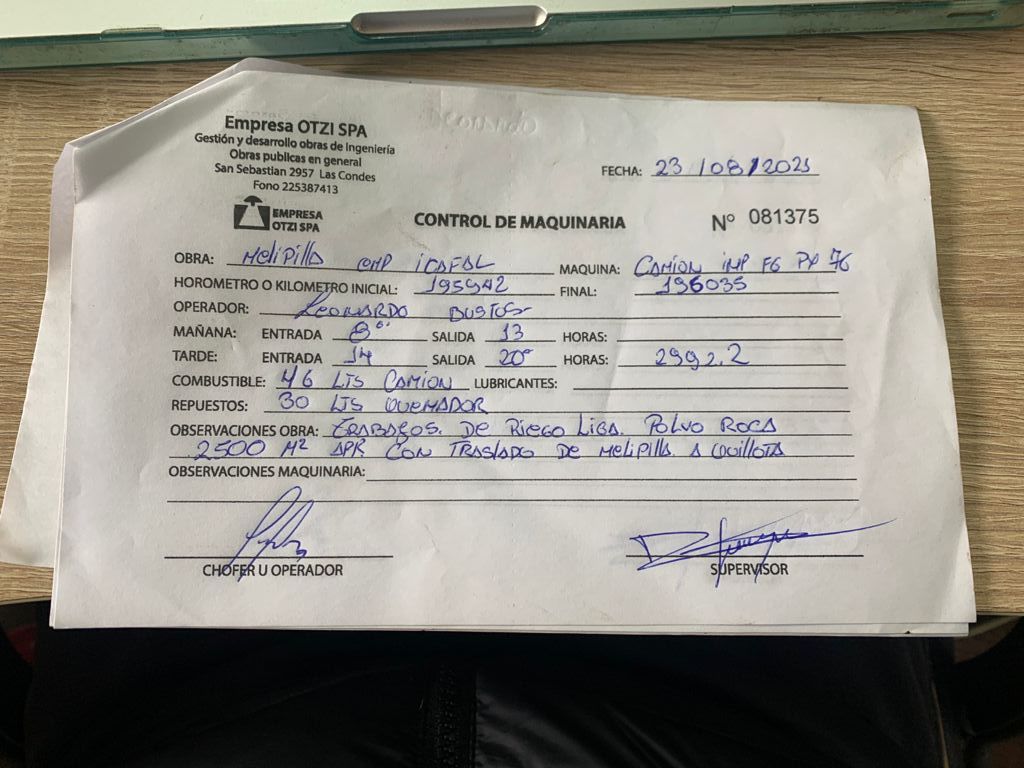 Empresa OTZI SPA
Gestión y desarrollo obras de Ingeniería
Obras publicas en general
San Sebastian 2957 Las Condes
Fono 225387413
EMPRESA
OTZI SPA
FECHA: 23/08/2021
CONTROL DE MAQUINARIA
Nº 081375
OBRA: Melipilla CMP ICAFAL MAQUINA: CAMION IMP FG PX 76
HOROMETRO O KILOMETRO INICIAL: 195942 FINAL: 196035
OPERADOR: Leonardo BUSTOS
MAÑANA: ENTRADA 8⁰⁰ SALIDA 13 HORAS:
TARDE: ENTRADA 14 SALIDA 20⁰ HORAS: 2992.2
COMBUSTIBLE: 46 LTS CAMION LUBRICANTES:
REPUESTOS: 30 LTS QUEMADOR
OBSERVACIONES OBRA: TRABAJOS. DE RIEGO LIGA. POLVO ROCA
2500 M² APR CON TRASLADO DE Melipilla A QUILLOTA
OBSERVACIONES MAQUINARIA:
CHOFER U OPERADOR
SUPERVISOR